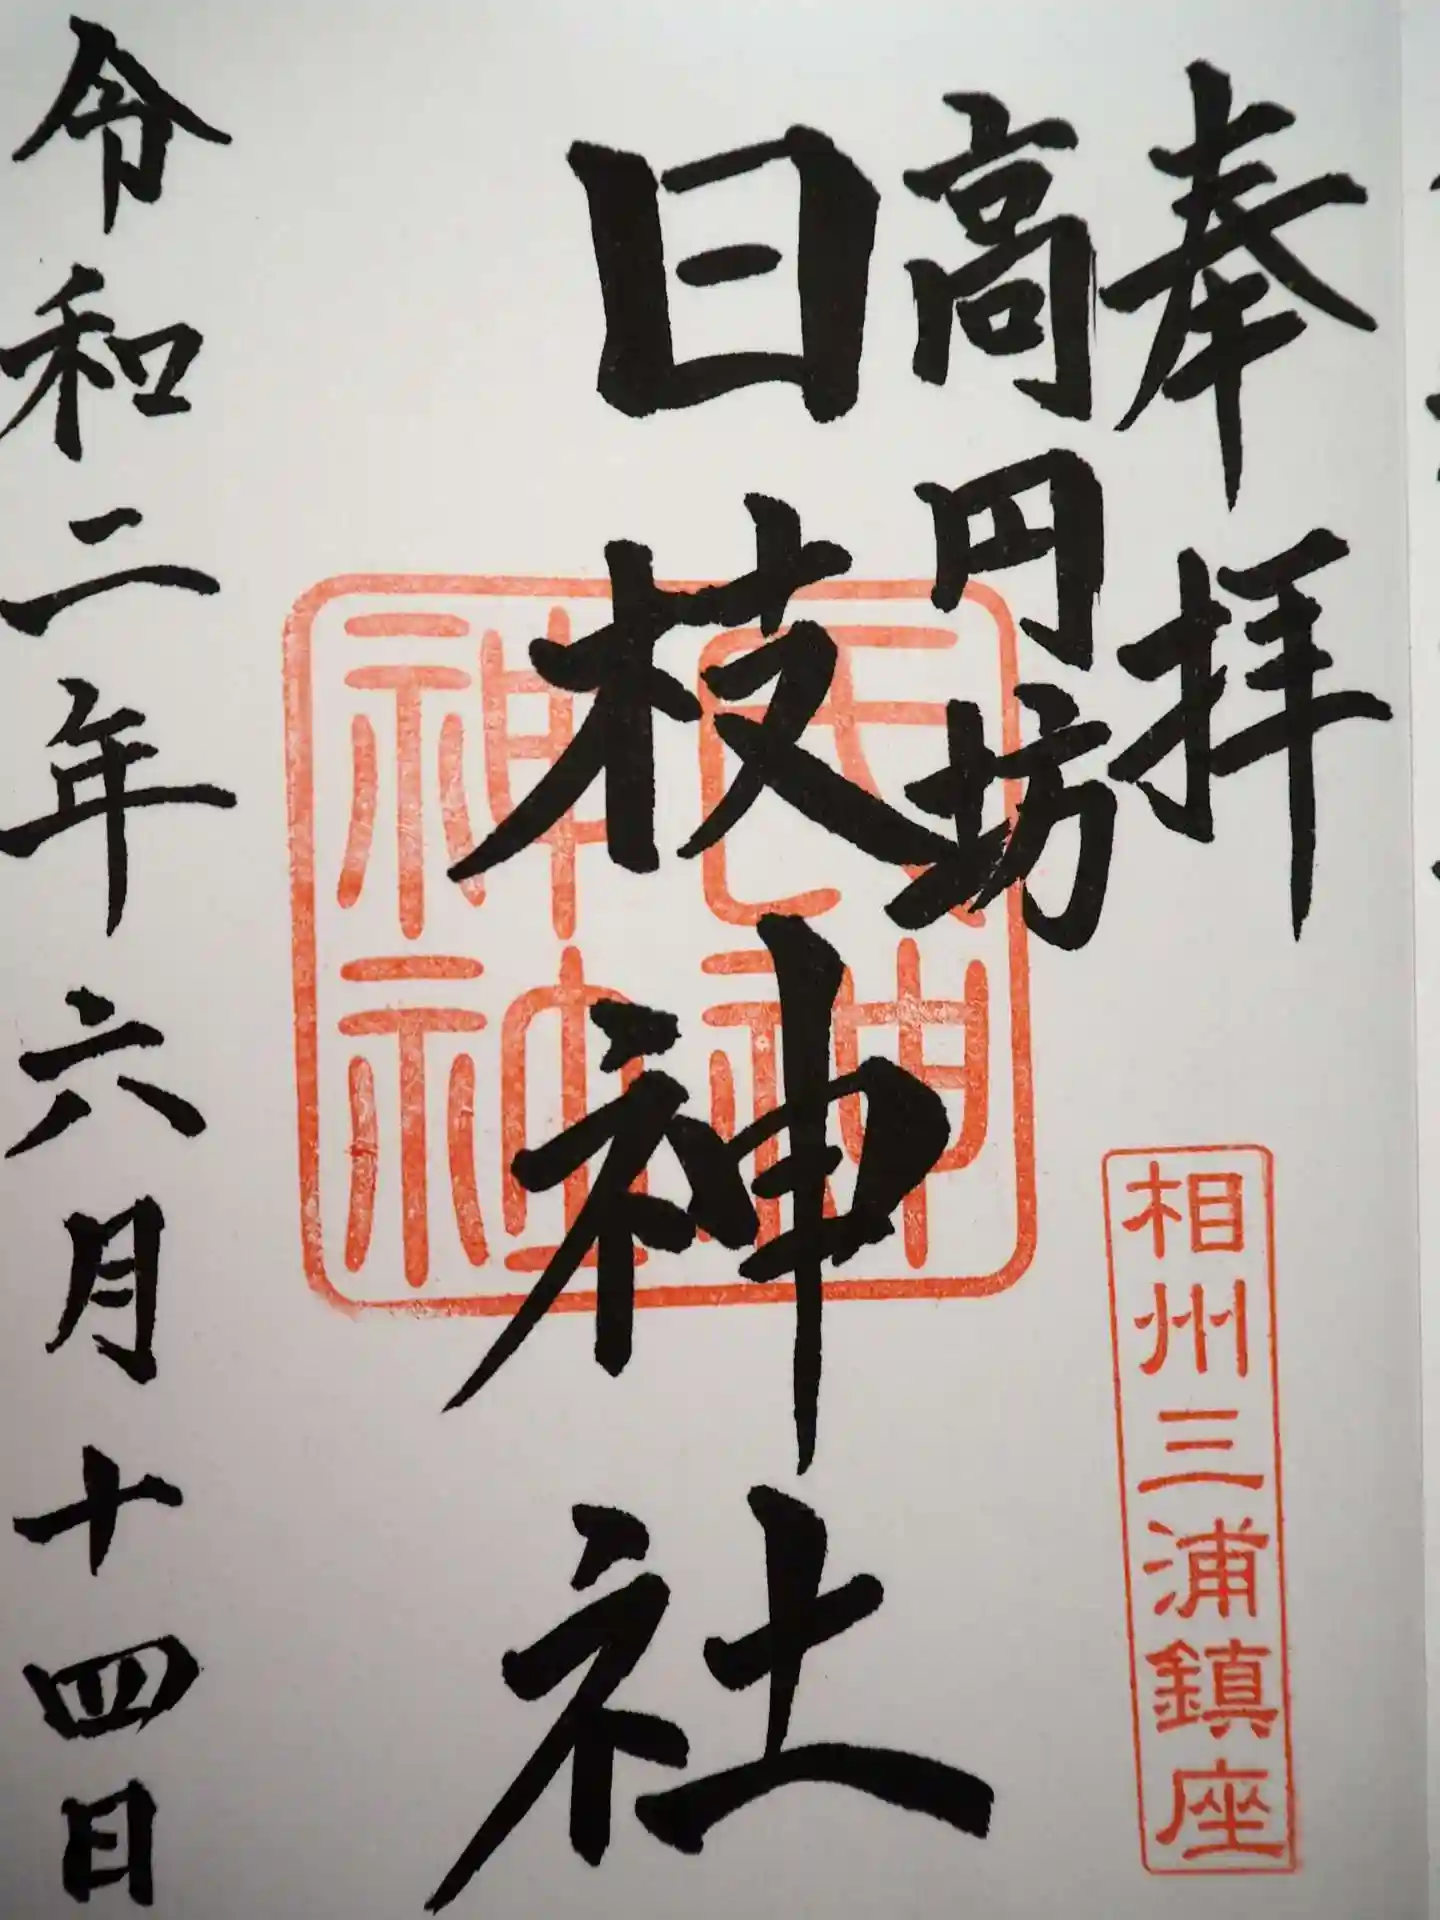 奉拝
相州三浦鎮座
高円坊
日枝神社
氏神
神社
令和二年六月十四日